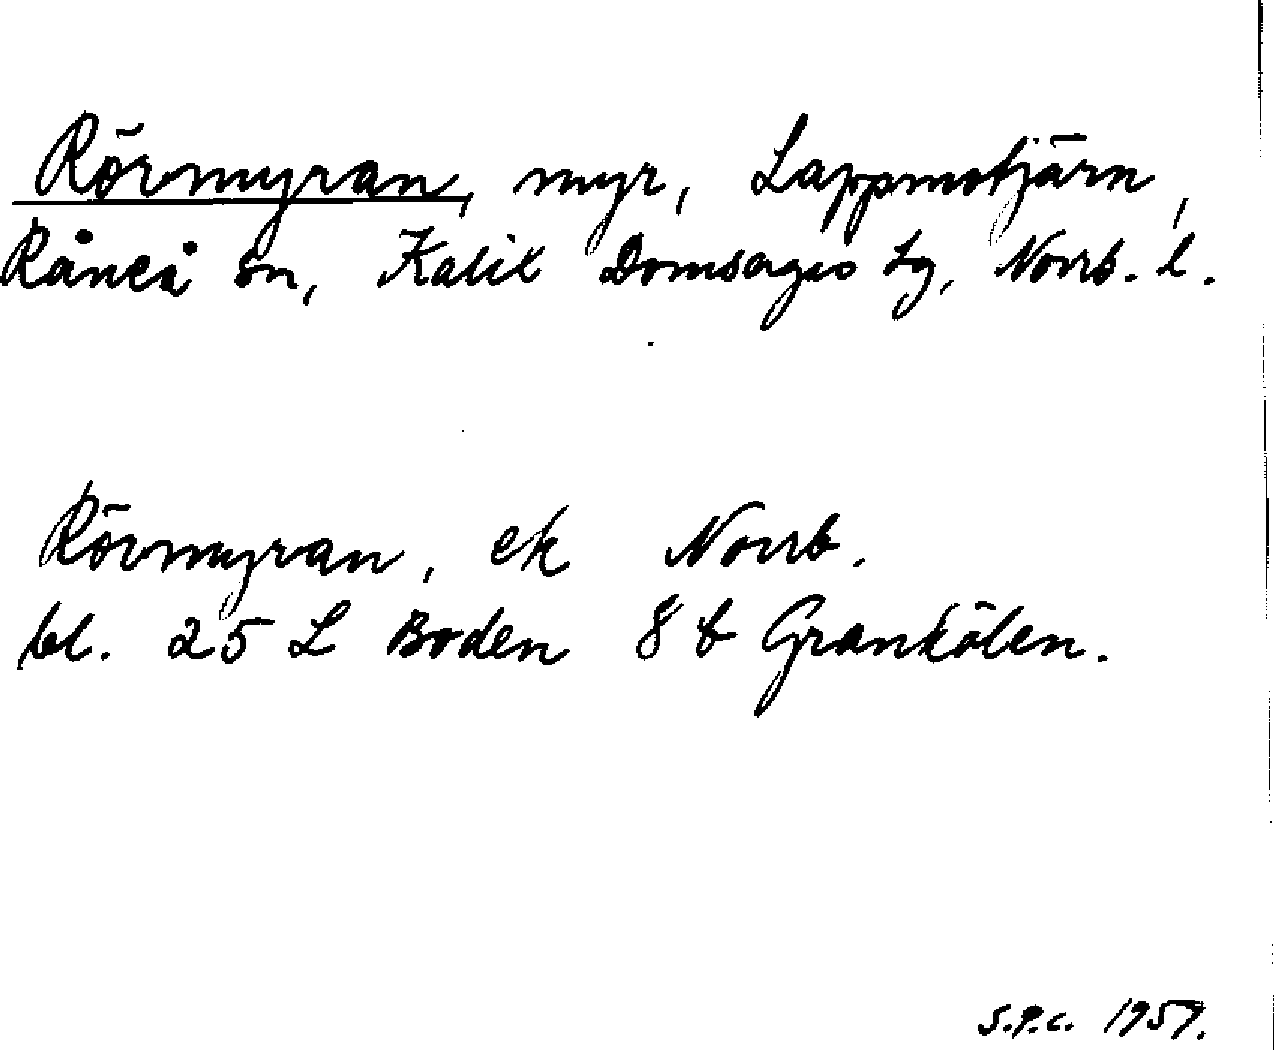 Rörmyran, myr, Lappmotjärn,
Råneå sn, Kalix Domsagas tg, Norrb. l.
Rörmyran, ek Norrb.
bl. 25 L Boden 8 b Grankölen.
S.P.C. 1957.